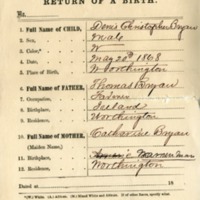 RETURN OF A BIRTH.
No.
1. Full Name of CHILD, Denis Christopher Bryan
2. Sex, Male
3. Color,* W
4. Date, May 20th 1868
5. Place of Birth, Worthington
6. Full Name of FATHER, Thomas Bryan
7. Occupation, Farmer
8. Birthplace, Ireland
9. Residence, Worthington
10. Full Name of MOTHER, Catherine Bryan
(Maiden Name)
11. Birthplace,
12. Residence, Worthington
Dated at 18